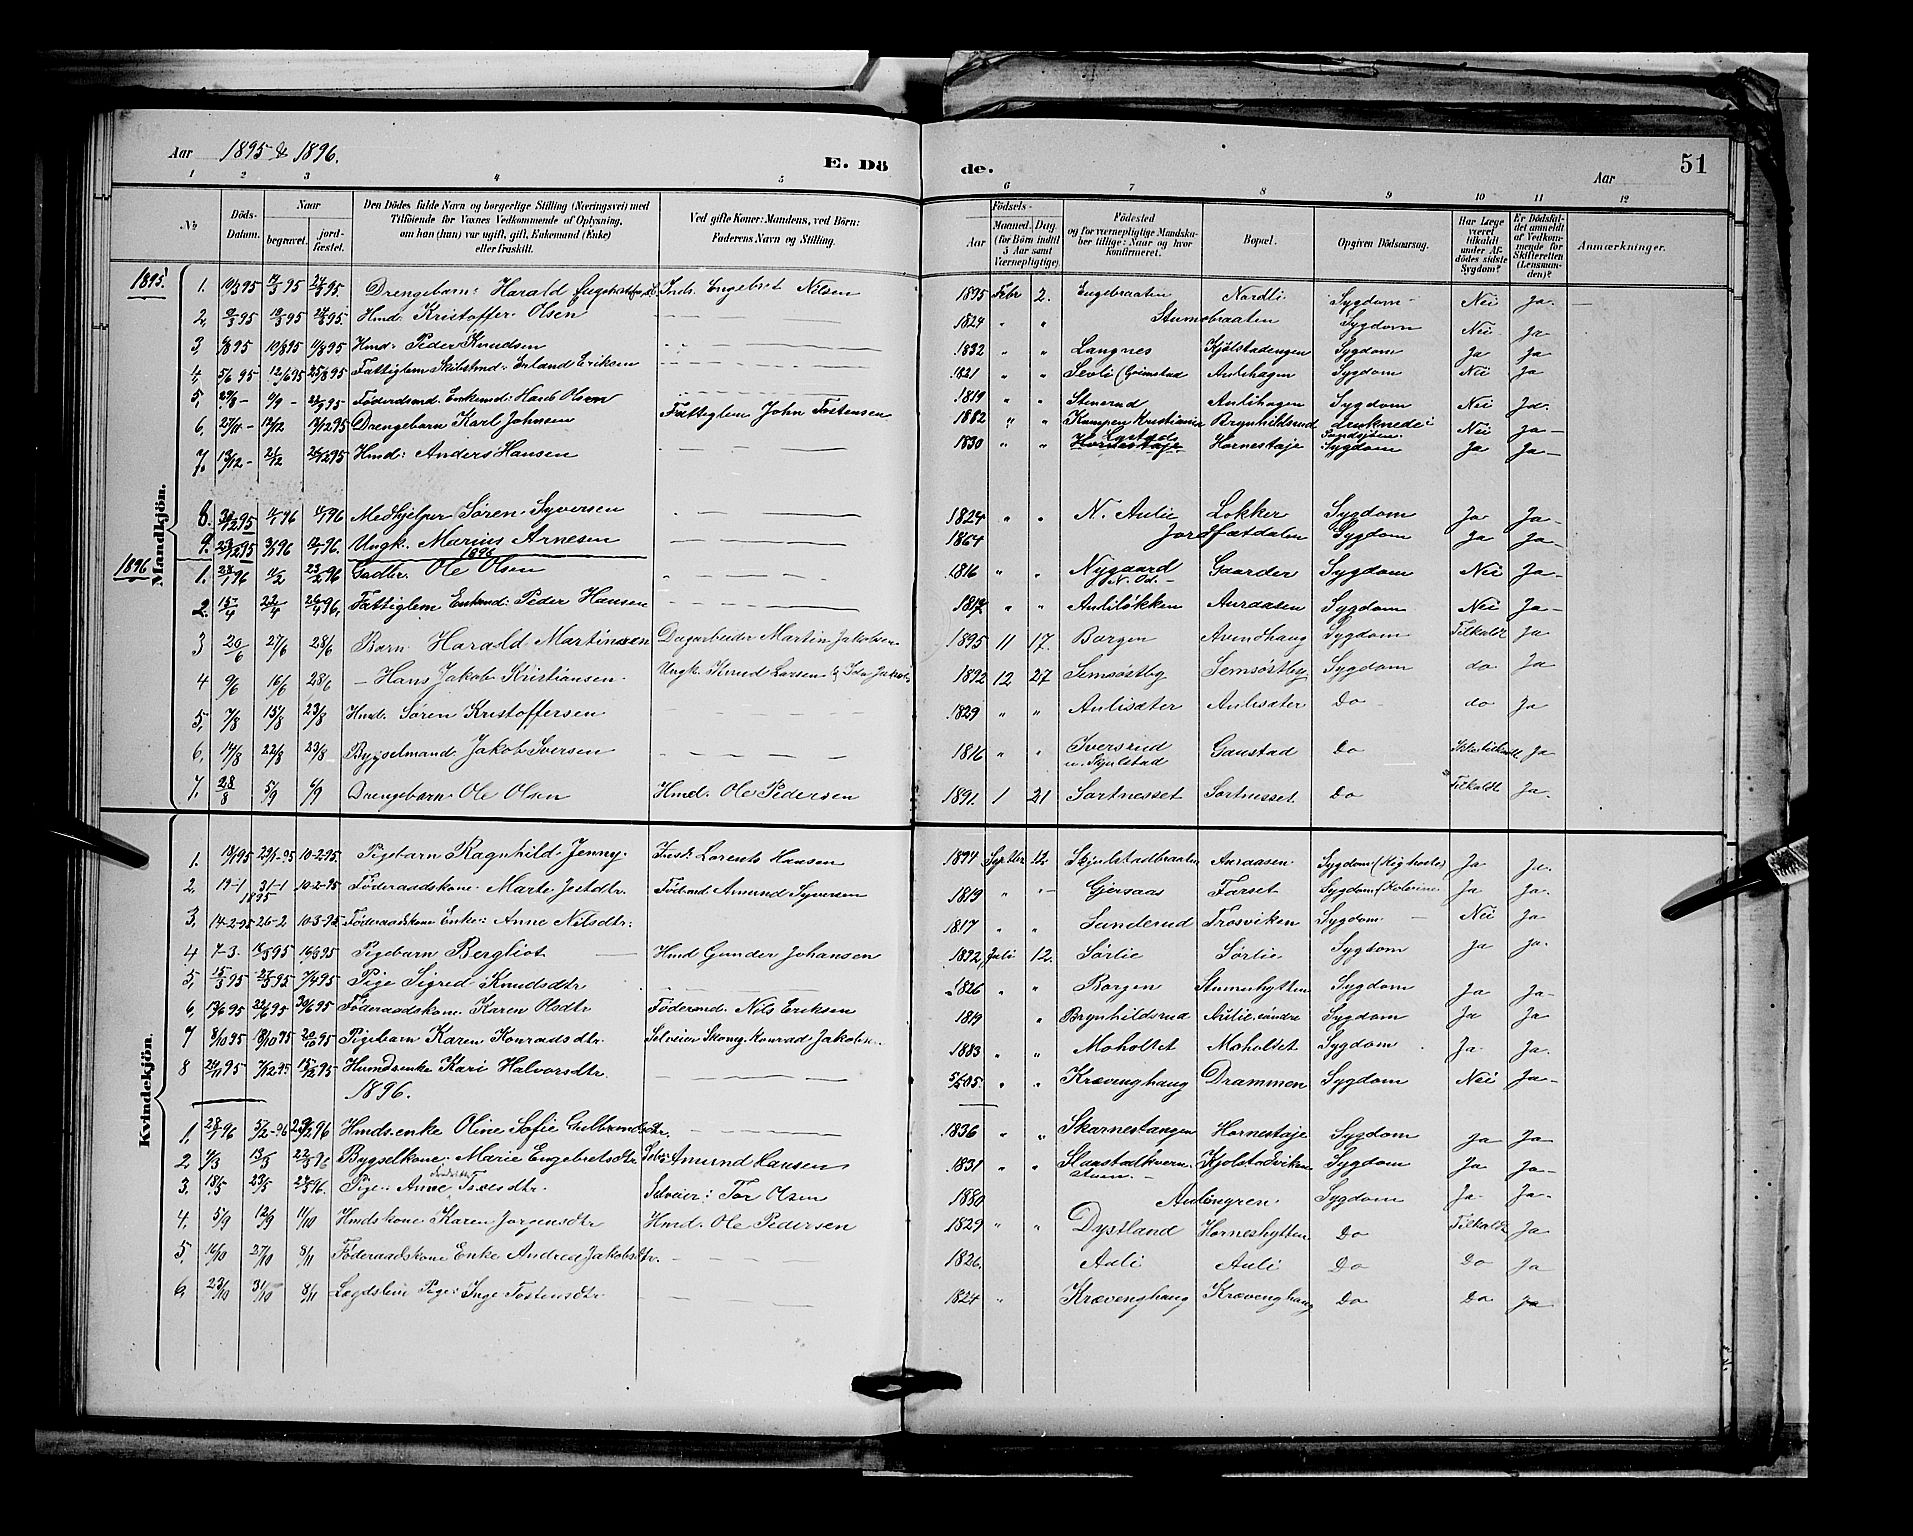 Aar 1895 & 1896.
E. Dö
de.
Aar
51
1 2 3 4 5 6 7 8 9 10 11 12
No
Döds-Datum.
Naar
begravet.
jord-fæstet.
Den Dödes fulde Navn og borgerlige Stilling (Næringsvei) med
Tilföiende for Voxnes Vedkommende af Oplysning,
om han (hun) var ugift, gift, Enkemand (Enke)
eller fraskilt.
Ved gifte Koner: Mandens, ved Börn:
Faderens Navn og Stilling.
Födsels-
Aar
Maaned. Dag
(for Börn indtil
5 Aar samt
Værnepligtige).
Födested
og for værnepligtige Mandska-
ber tillige: Naar og hvor
konfirmeret.
Bopæl.
Opgiven Dödsaarsag.
Har Læge
været
tilkaldt
under Af-
dödes sidste
Sygdom?
Er Dödsfal-
det anmeldt
af Vedkom-
mende for
Skifteretten
(Lensman-
den)?
Anmærkninger.
Mandkjön.
1895.
1. Drengebarn: Harald Inds. Engebret Nilsen 1895 Febr 2. Engebraaten Nordli Sygdom Nei Ja.
2. Hmd. Kristoffer Olsen 1824 " " Stumobraaten Sygdom Nei Ja
3. 10/8 95 11/8 95 Hmd: Peder Knudsen 1832 " " Langnes Kjølstadengen Sygdom Ja Ja
4. 5/6 95 12/6 95 25/8 95 Fattiglem Erland Eriksen 1821 " " Aulihagen Sygdom Nei Ja
5. Føderaadsmd. Enkemd: Hans Olsen 1819 " " Stenerud Aulihagen Sygdom Nei Ja.
6. 27/10 - Drengebarn Karl Johnsen Fattiglem John Tostensen 1882 " " Kampen Kristiania Brynhildsrud druknede i Nei Ja
7. Hmd: Anders Hansen 1830 " " Hornestaje Sygdom Ja Ja
8. Medhjelper Søren Syversen 1824 " " N. Aulie Løkker Sygdom Ja Ja
9. Ungk. Marius Arnesen 1864 Jordfætdalen Sygdom Ja Ja
1896
1896
1. Gadbr. Ole Olsen 1816 " " Nygaard N. Od. Gaarder Sygdom Nei Ja
2. 15/4 22/4 26/4 96. Fattiglem Enkmd: Peder Hansen 1817 " " Auliløkken Auraasen Sygdom Nei Ja
3 20/6 27/6 28/6 Barn Harald Martinsen Dagarbeider Martin Jakobsen 1895 11 17. Borgen Aamodhaug Sygdom Tilkaldt Ja
4 9/6 16/6 28/6 - Hans Jakob Kristiansen. Ungk. Knud Larsen & Ida Jakobs 1892 12 27 Semsøstby Semsøstby Sygdom do Ja
5. 7/8 15/8 23/8 Hmd. Søren Kristoffersen 1829 " " Aulisæter Aulisæter Do do Ja
6. 14/8 22/8 23/8 Bygselmand Jakob Iversen 1816 " " Iversrud u. Skjulstad Gaustad Do Ikke tilkaldt Ja
7. 28/8 5/9 6/9 Drengebarn Ole Olsen Hmd. Ole Pedersen 1891. 1 21 Sortnesset Sortnesset Do Tilkaldt Ja.
Kvindekjön.
1. 29/1-95 10-2-95. Pigebarn Ragnhild Jenny. Inds: Lorents Hansen 1894 Septbr 12. Skjulstadbraaten Auraasen Sygdom (Kighoste) Ja Ja.
2. 19-1 31-1 1895 10-2-95 Føderaadskone Marte Jostdtr. Føderaadsmd. Amund Syversen 1819 " - Gjersaas Farset Sygdom Ja Ja.
3. 14-2-95 26-2 10-3-95 Føderaadskone Enke: Anne Nilsdtr: 1817 " " Sunderud Trosviken Sygdom. Nei Ja
4 7-3. Pigebarn Bergliot Hmd Gunder Johansen 1892 Juli 12. Sørlie Sørlie Sygdom Ja Ja.
5. 15/3 95 23/3 95 7/4 95 Pige Sigred Knudsdtr 1826 " Borgen Stumnehytten Sygdom Ja Ja
6. 13/6 95 22/6 95 30/6 95 Føderaadskone Karen Olsdtr Føderaadsmd. Nils Eriksen 1819 " Brynhildsrud Aulie søndre Sygdom Ja Ja
7 8/10 95 18/10 95 20/10 95 Pigebarn Karen Konradsdtr. Selveier Skomg. Konrad Jakobs. 1883 " " Moholtet Moholtet Sygdom. Ja Ja.
8 24/11 95 7/12 95 15/12 95 Hmdsenke Kari Halvorsdtr. " " Krævenghaug Drammen Sygdom Nei Ja
1896.
1. 28/1-96 5/2-96 Hmds.enke Oline Sofie Gulbrandsdtr. 1836 " " Skarnestangen Hornestaje Sygdom Ja Ja
2 4/3 13/3 22/3 96 Bygselkone: Marie Engebretsdtr Amund Hansen 1831 " " Kjølstadviken Sygdom Ja Ja
3. 18/5 23/5 24/5 96. Pige: Anne Toresdtr. Selveier: Tor Olsen 1880 Aulimyren Sygdom Ja Ja
4. 5/9 12/9 11/10 Hmdskone Karen Jørgensdtr Hmd. Ole Pedersen 1829 " " Dystland Horneshytten Do Tilkaldt Ja
5. 16/10 27/10 8/11 Føderaadskone Enke Andrea Jakobsdtr. 1826. Auli Auli Do Do Ja
6 23/10 31/10 8/11 Lægdslem Pige: Inge Tostensdtr 1824 " Krævenghaug Krævenghaug Do Do Ja